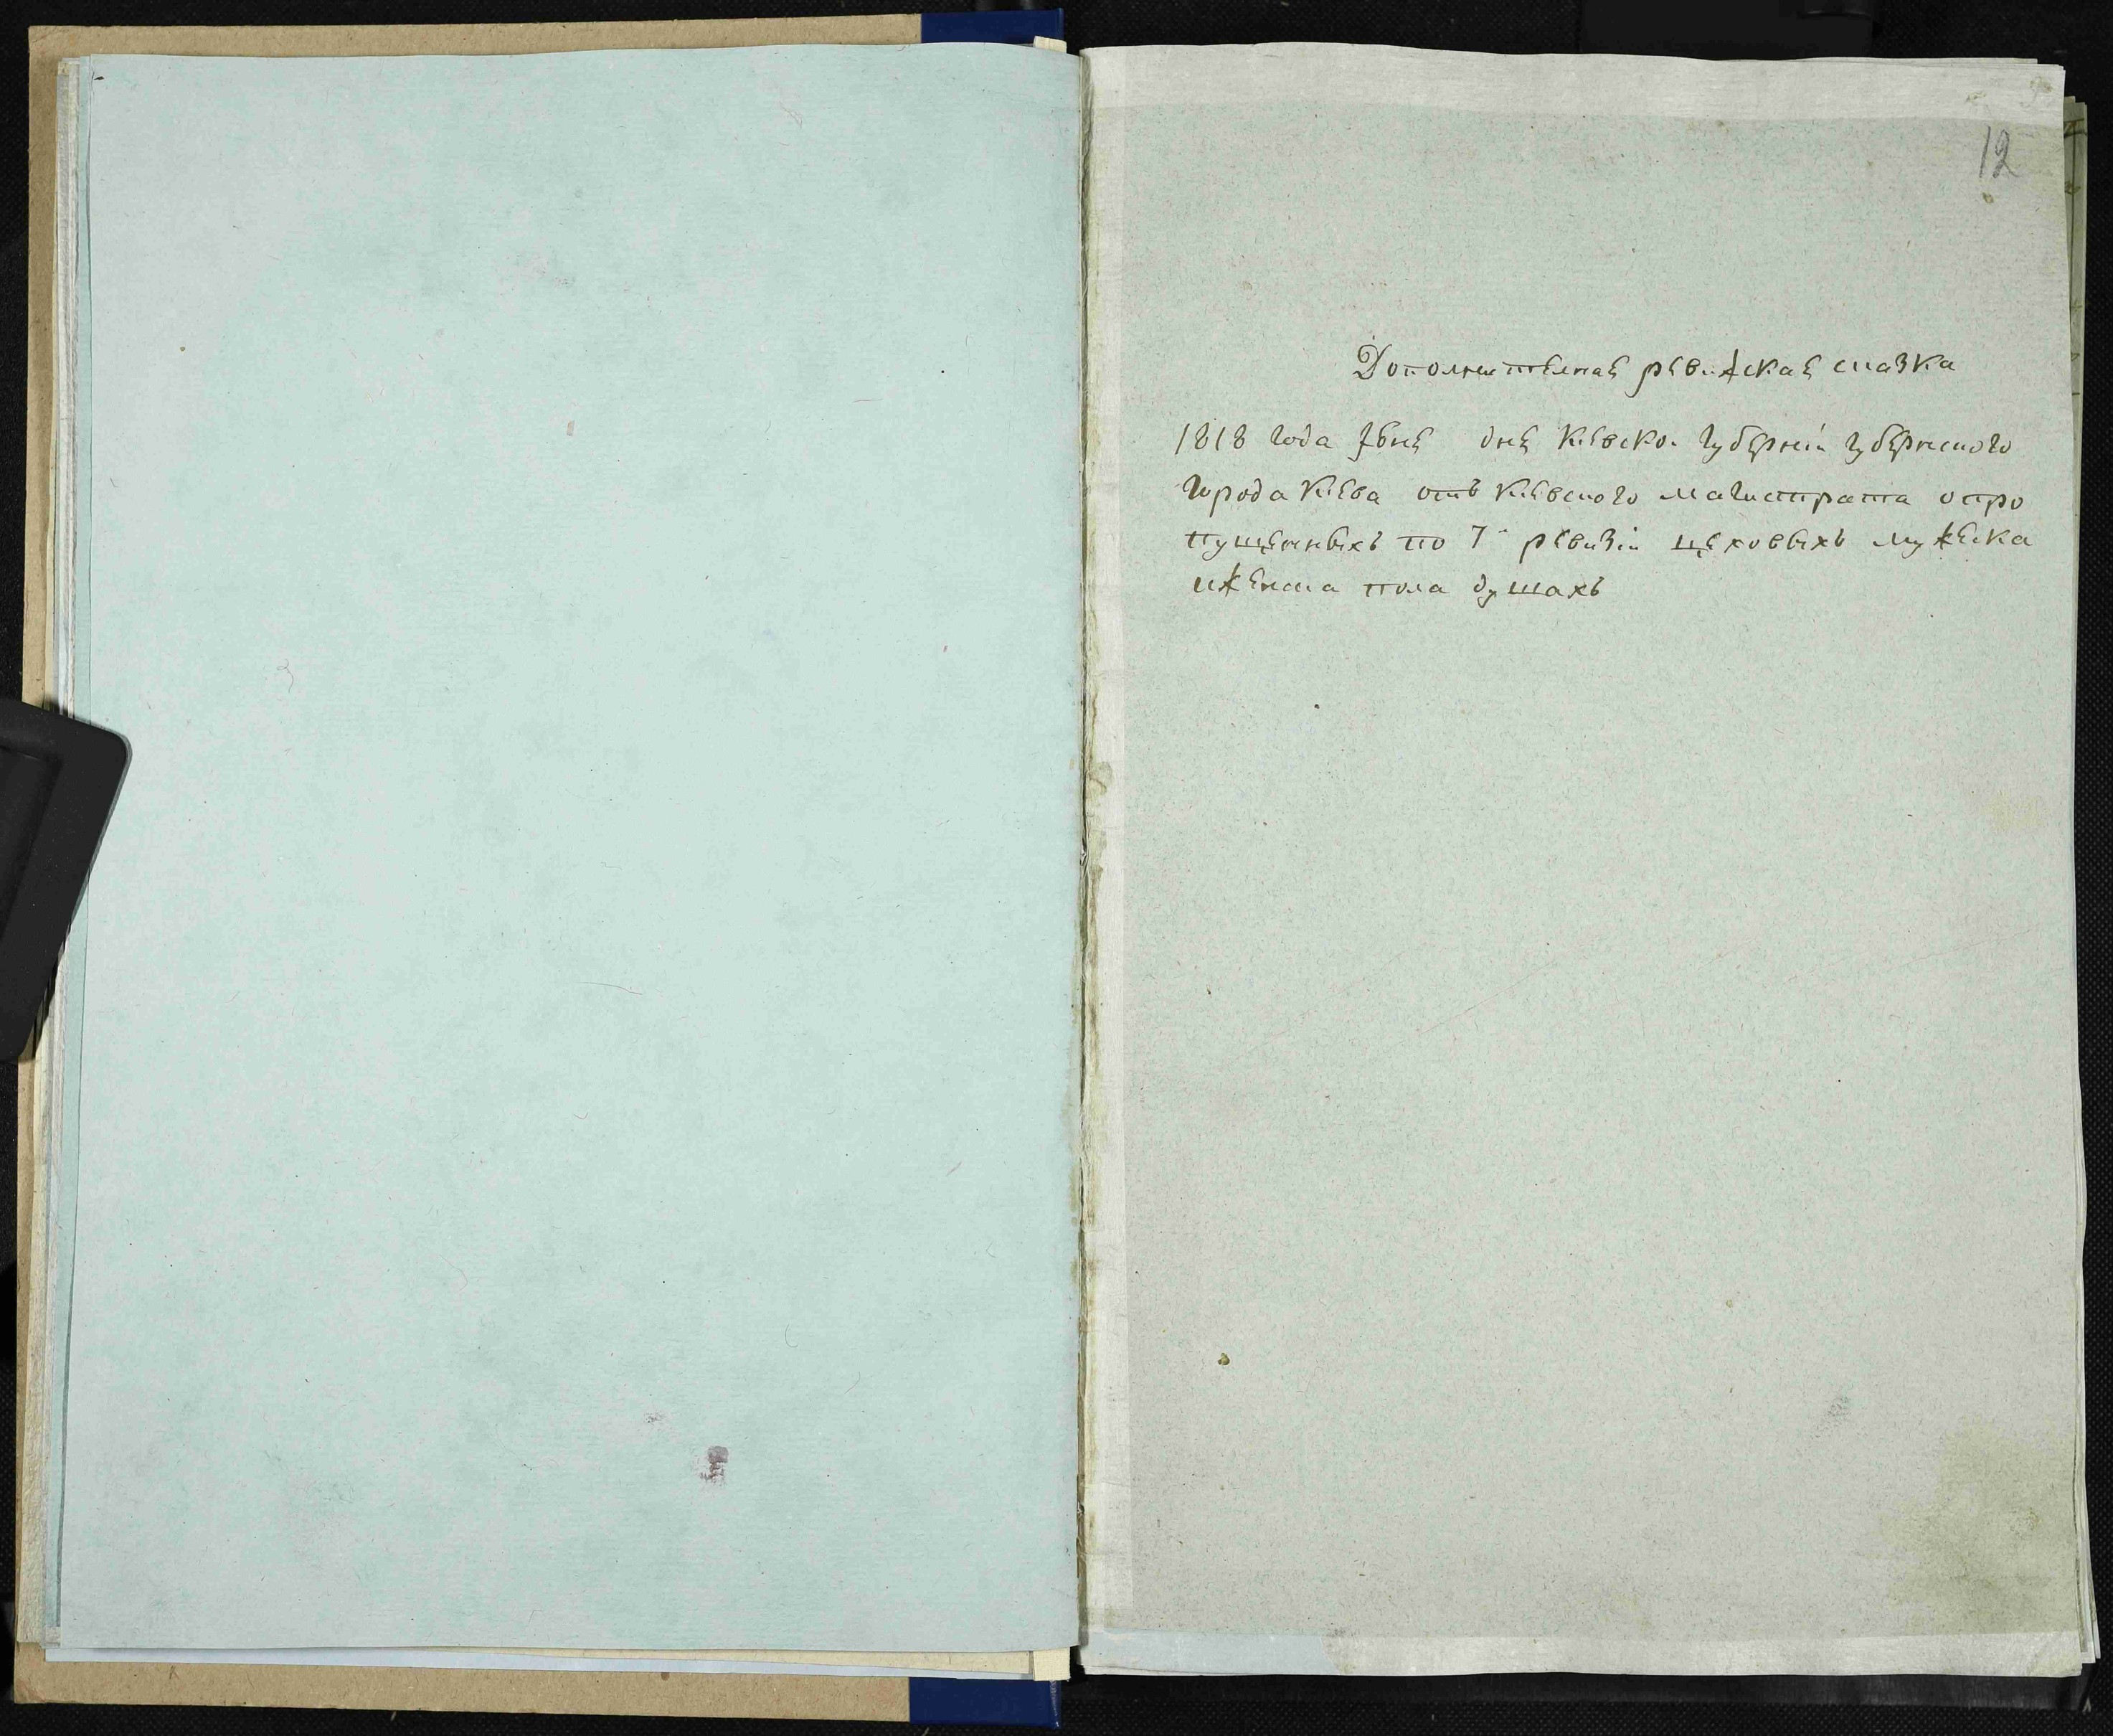 12
Дополнителная ревижская сказка
1818 года Іюня дня Киевской Губерніи Губернского
Города Киева отъ Киевского магистрата опро
пущенныхъ по 7й ревизіи цеховыхъ мужеска
иженска пола душахъ